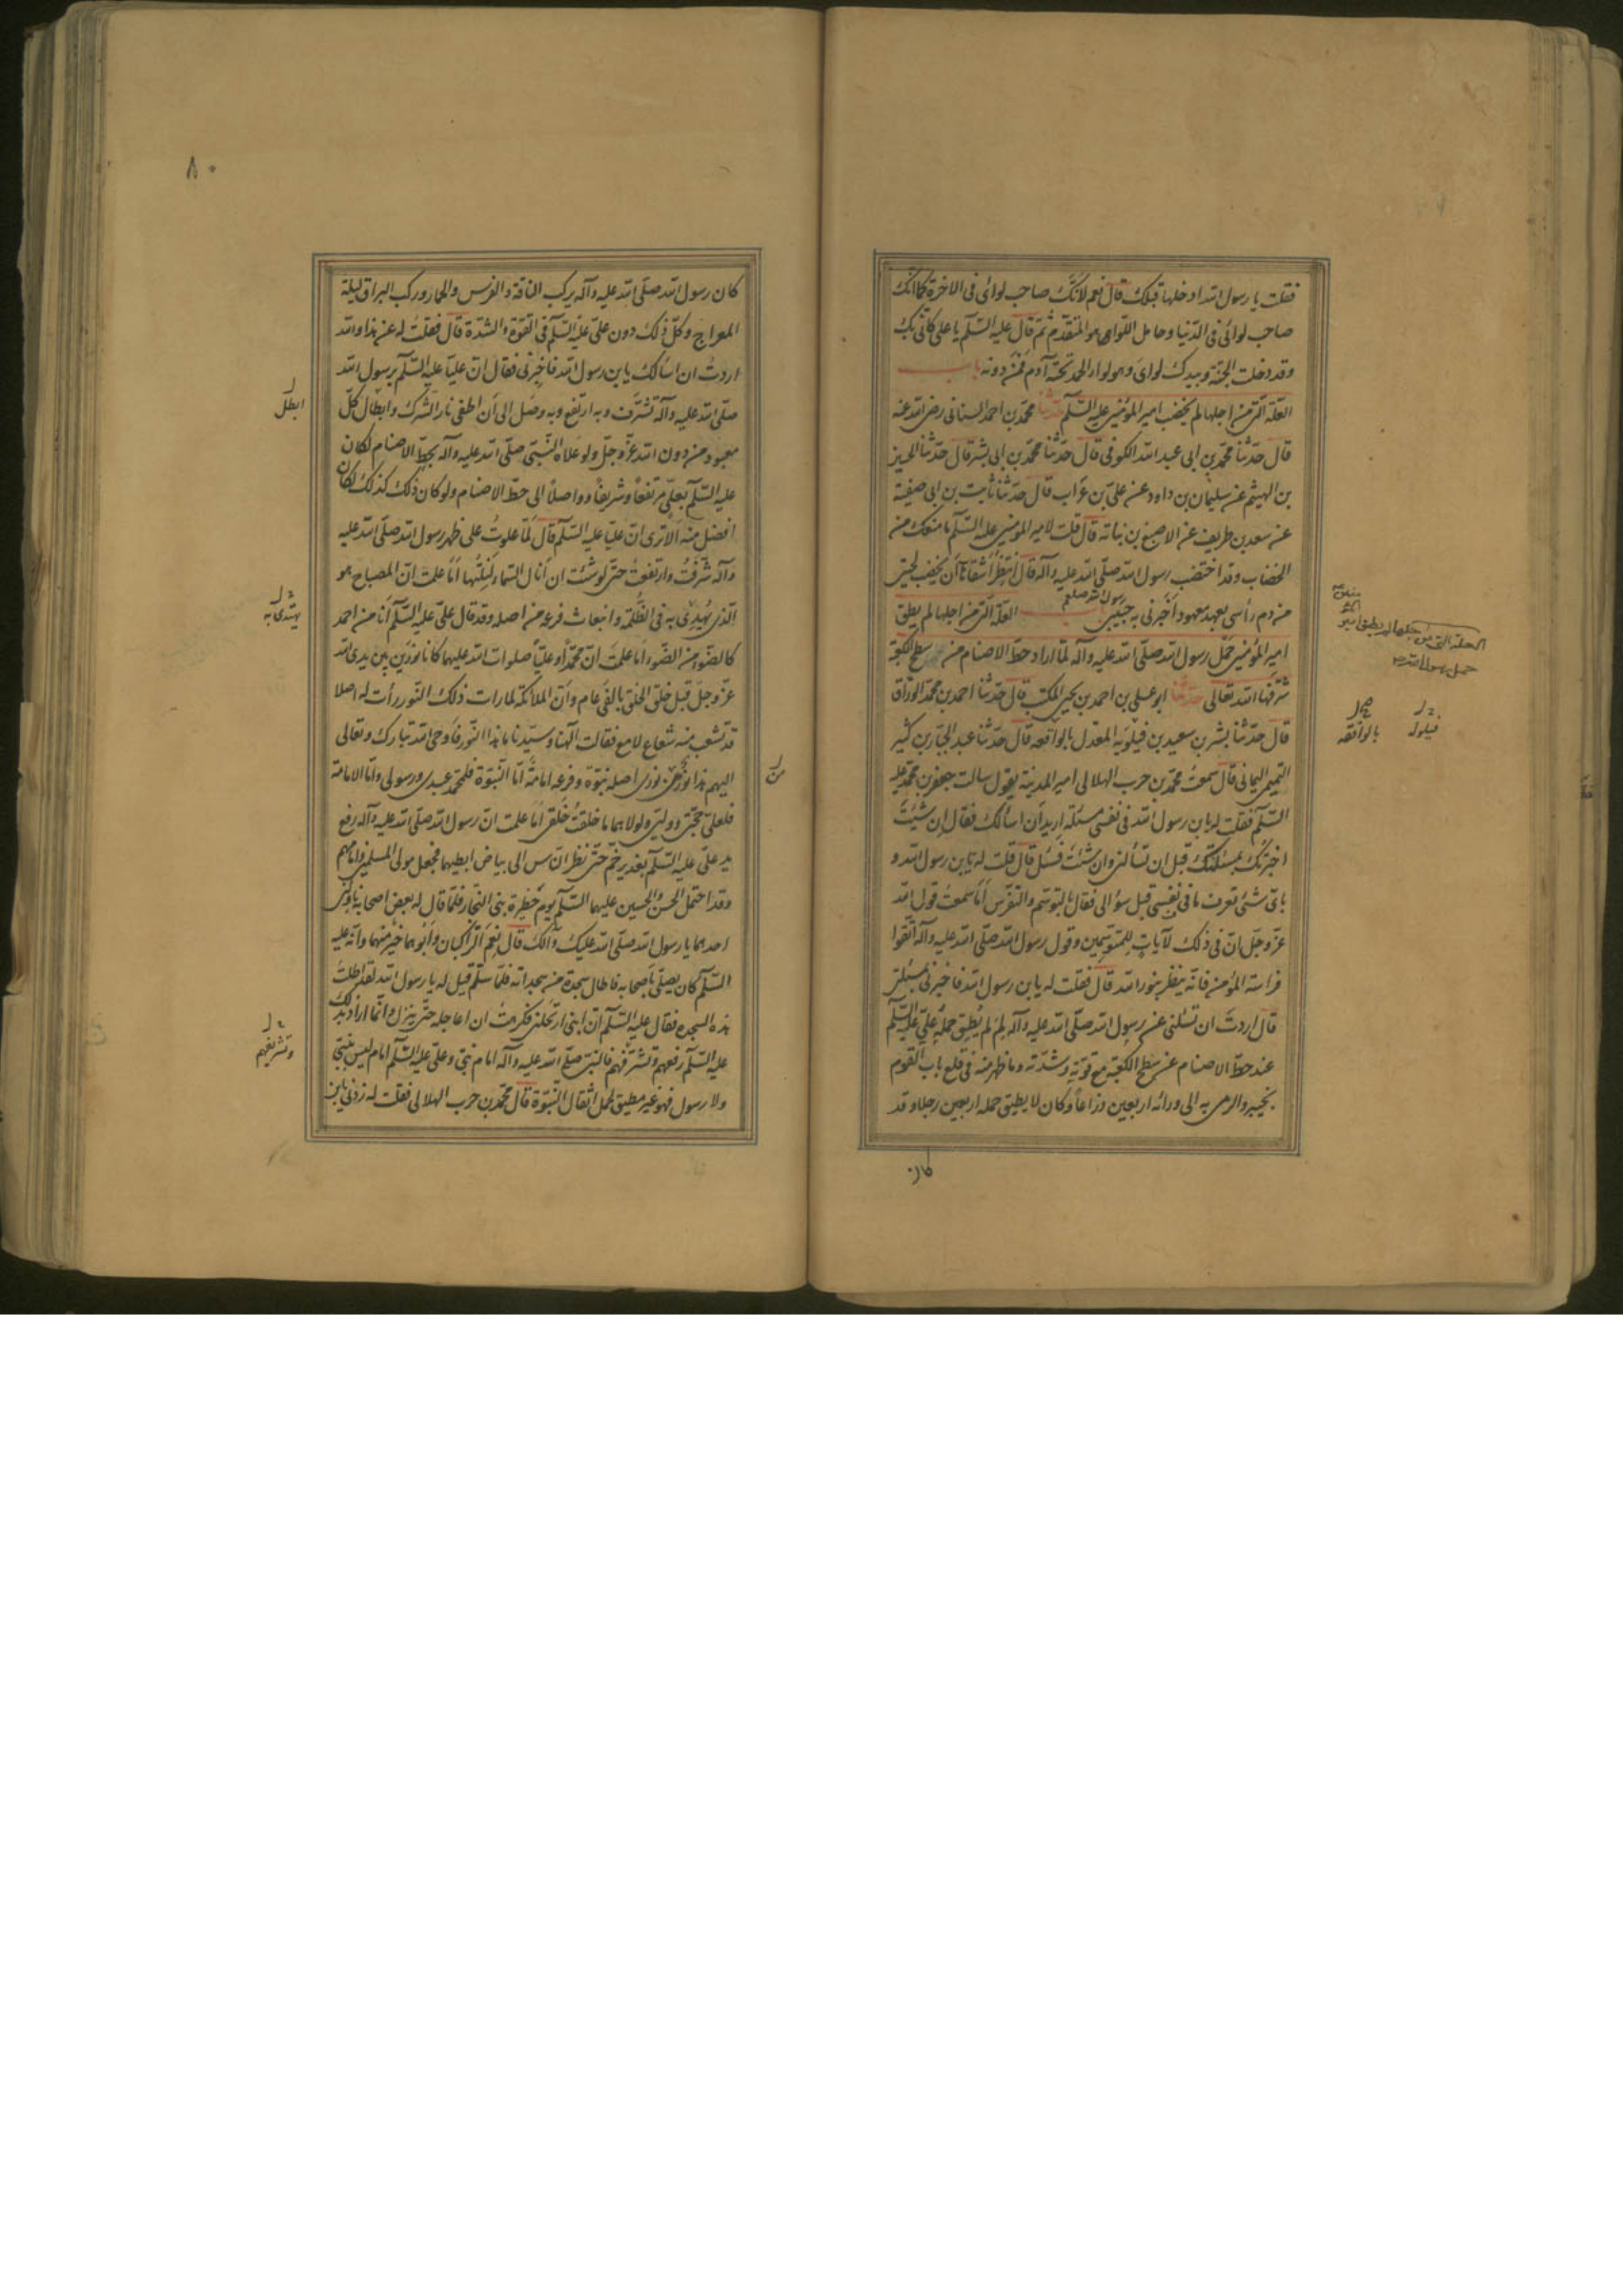 فقلت يا رسول الله ادخلها قبلك قال نعم لانّك صاحب لوائى فى الاخرة كما انّك
صاحب لوائى فى الدّنيا وحامل اللّواء هو المتقدّم ثمّ قال عليه السّلم يا على كانّى بك
وقد دخلت الجنّة وبيدك لواى وهو لواء الحمد تحته آدم فمن دونه باب
العلّة الّتى من اجلها لم يخضب امير المؤمنين عليه السّلم حدّثنا محمّد بن احمد السنانى رضى الله عنه
قال حدّثنا محمّد بن ابى عبد الله الكوفى قال حدّثنا محمّد بن ابى بشر قال حدّثنا الحسين
بن الهيثم عن سليمان بن داود عن علىّ بن غراب قال حدّثنا ثابت بن ابى صفيّة
عن سعد بن طريف عن الاصبغ بن نباتة قال قلت لامير المؤمنين عليه السّلم ما منعك من
الخضاب وقد اختضب رسول الله صلّى الله عليه وآله قال انتظر اشقاها ان يخضب لحيتى
من دم رأسى بعهد معهود اخبرنى به حبيبى رسول الله صلعم باب العلّة الّتى من اجلها لم يطق
امير المؤمنين حمل رسول الله صلّى الله عليه وآله لمّا اراد حطّ الاصنام من سطح الكعبة
شرّفها الله تعالى حدّثنا ابو على بن احمد بن يحيى المكتب قال حدّثنا احمد بن محمّد الورّاق
قال حدّثنا بشر بن سعيد بن فيلويه المعدل بالواقعه قال حدّثنا عبد الجبّار بن كثير
التميمى اليمانى قال سمعت محمّد بن حرب الهلالى امير المدينة يقول سالت جعفر بن محمّد عليه
السّلم فقلت له يا بن رسول الله فى نفسى مسئلة اريد ان اسالك فقال ان شئت
اخبرتك بمسئلتك قبل ان تسألنى وان شئت فسل قال قلت له يا بن رسول الله و
باىّ شئ تعرف ما فى نفسى قبل سؤالى فقال بالتوسّم والتفرّس اما سمعت قول الله
عزّ وجلّ انّ فى ذلك لآيات للمتوسّمين وقول رسول الله صلّى الله عليه وآله اتّقوا
فراسة المؤمن فانّه ينظر بنور الله قال فقلت له يا بن رسول الله فاخبرنى بمسئلتى
قال اردت ان تسئلنى عن رسول الله صلّى الله عليه وآله لم لم يطق حمله علىّ عليه السّلم
عند حطّ الاصنام عن سطح الكعبة مع قوّته وشدّته وما ظهر منه فى قلع باب القوم
بخيبر والرمى به الى ورائه اربعين ذراعاً وكان لا يطيق حمله اربعين رجلا وقد
كان
العلة التى من اجلها لم يطق امير
حمل رسول الله ص
فيلوله
بالوافقه
٨٠
كان رسول الله صلّى الله عليه وآله يركب الناقة والفرس والحمار وركب البراق ليلة
المعراج وكلّ ذلك دون علىّ عليه السّلم فى القوّة والشدّة قال فقلت له عن هذا والله
اردت ان اسالك يا بن رسول الله فاخبرنى فقال انّ عليّاً عليه السّلم برسول الله
صلّى الله عليه وآله تشرّف وبه ارتفع وبه وصل الى ان اطفى نار الشّرك وابطال كلّ
معبود من دون الله عزّ وجلّ ولو علاه النّبىّ صلّى الله عليه وآله بحطّ الاصنام لكان
عليه السّلم بعلىّ مرتفعاً وشريفاً وواصلاً الى حطّ الاصنام ولو كان ذلك كذلك لكان
افضل منه الا ترى انّ عليّاً عليه السّلم قال لمّا علوت على ظهر رسول الله صلّى الله عليه
وآله شرّفت وارتفعت حتّى لو شئت ان انال السّماء لنلتها اما علمت انّ المصباح هو
الّذى يهيدى به فى الظّلمة وانبعاث فرعه من اصله وقد قال علىّ عليه السّلم انا من احمد
كالضّوء من الضّوء اما علمت انّ محمّداً وعليّاً صلوات الله عليهما كانا نورين بين يدى الله
عزّ وجلّ قبل خلق الخلق بالفى عام وانّ الملائكة لما رات ذلك النّور رأت له اصلا
قد تشعّب منه شعاع لامع فقالت آلهنا وسيّدنا ما هذا النّور فاوحى الله تبارك وتعالى
اليهم هذا نور من نورى اصله نبوّة وفرعه امامة امّا النّبوّة فلمحمّد عبدى ورسولى وامّا الامامة
فلعلىّ حجّتى ووليّى ولولاهما ما خلقت خلقى اما علمت انّ رسول الله صلّى الله عليه وآله رفع
يد علىّ عليه السّلم بغدير خمّ حتّى نظر النّاس الى بياض ابطيهما فجعل مولى المسلمين وامامهم
وقد احتمل الحسن والحسين عليهما السّلم يوم حظيرة بنى النجّار فلمّا قال له بعض اصحابه ناولنى
احدهما يا رسول الله صلّى الله عليك وآلك قال نعم الرّاكبان وابوهما خير منهما وانّه عليه
السّلم كان يصلّى باصحابه فاطال سجدة من سجداته فلمّا سلّم قيل له يا رسول الله لقد اطلت
هذه السجدة فقال عليه السّلم انّ ابنى ارتحلنى فكرهت ان اعاجله حتّى ينزل وانّما اراد بذلك
عليه السّلم رفعهم وتشرّفهم فالنبىّ صلّى الله عليه وآله امام نبىّ وعلىّ عليه السّلم امام ليس بنبىّ
ولا رسول فهو غير مطيق لحمل اثقال النّبوّة قال محمّد بن حرب الهلالى فقلت له زدنى يا بن
ابطل
يهتدى به
من
وتشريفهم